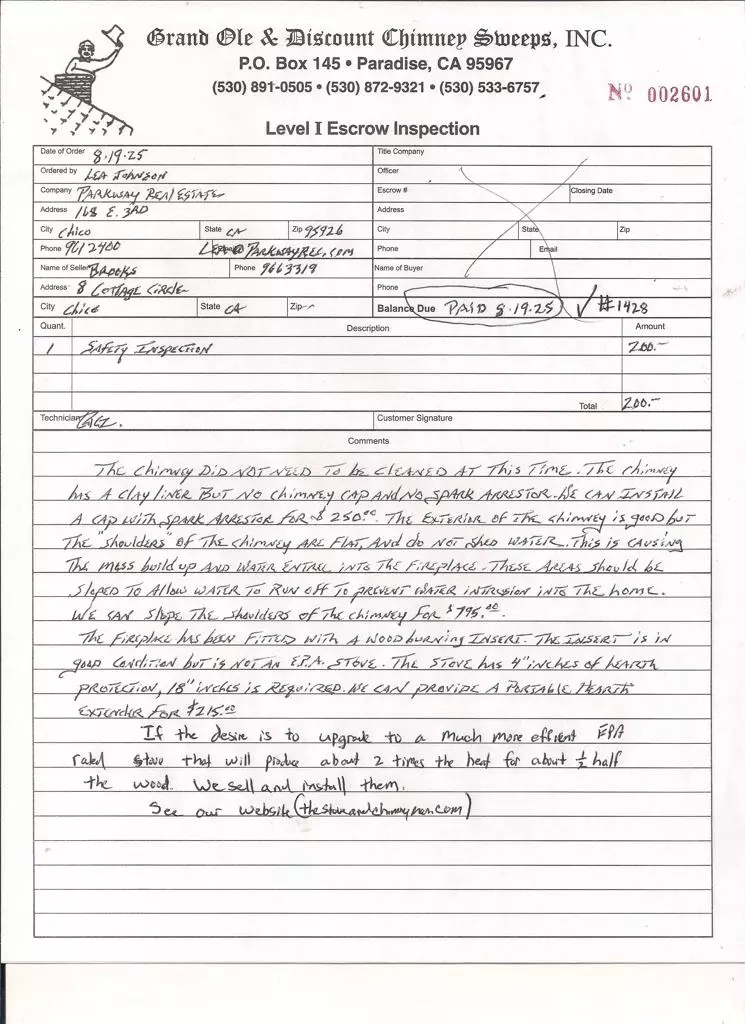 Grand Ole & Discount Chimney Sweeps, INC.
P.O. Box 145 • Paradise, CA 95967
(530) 891-0505 • (530) 872-9321 • (530) 533-6757
Nº 002601
Level I Escrow Inspection
Date of Order 8.19.25
Title Company
Ordered by LEA JOHNSON
Officer
Company PARKWAY REAL ESTATE
Escrow # Closing Date
Address 168 E. 3RD
Address
City Chico State CA Zip 95926
City State Zip
Phone 961 2400 LEA@PARKWAYREC.COM
Phone Email
Name of Seller BROOKS Phone 966 3319
Name of Buyer
Address 8 COTTAGE CIRCLE
Phone
City Chico State CA Zip
Balance Due PAID 8.19.25 ✓ #1428
Quant. Description Amount
1 SAFETY INSPECTION 200.-
Total 200.-
Technician
Customer Signature
Comments
THE CHIMNEY DID NOT NEED TO BE CLEANED AT THIS TIME. THE CHIMNEY
HAS A CLAY LINER BUT NO CHIMNEY CAP AND NO SPARK ARRESTOR. WE CAN INSTALL
A CAP WITH SPARK ARRESTOR FOR $250.00. THE EXTERIOR OF THE CHIMNEY IS GOOD BUT
THE "SHOULDERS" OF THE CHIMNEY ARE FLAT, AND DO NOT SHED WATER. THIS IS CAUSING
THE MASS BUILD UP AND WATER ENTREE INTO THE FIREPLACE. THESE AREAS SHOULD BE
SLOPED TO ALLOW WATER TO RUN OFF TO PREVENT WATER INTRUSION INTO THE HOME.
WE CAN SLOPE THE SHOULDERS OF THE CHIMNEY FOR $795.00.
THE FIREPLACE HAS BEEN FITTED WITH A WOODBURNING INSERT. THE INSERT IS IN
GOOD CONDITION BUT IS NOT AN E.P.A. STOVE. THE STOVE HAS 4" INCHES OF HEARTH
PROTECTION, 18" INCHES IS REQUIRED. WE CAN PROVIDE A PORTABLE HEARTH
EXTENDER FOR $215.00
If the desire is to upgrade to a much more efficent EPA
rated stove that will produce about 2 times the heat for about ½ half
the wood. We sell and install them.
See our website (thestoveandchimneymen.com)